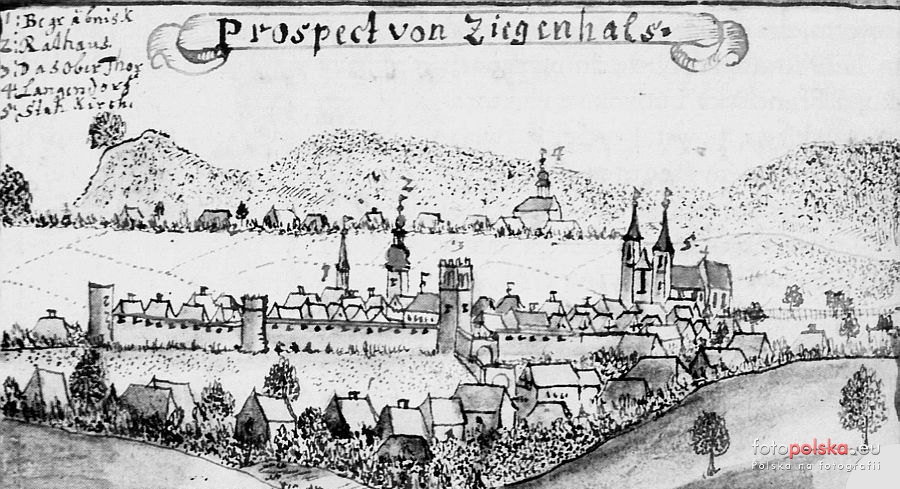 Prospect von Ziegenhals.
1: Begräbnisk
2: Rathaus.
3: Das Ober Thor
4: Langendorf
5: Stat Kirche
4
2
3
5
1
fotopolska.eu
Polska na fotografii